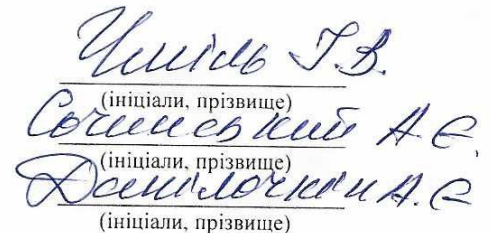 Чміль Г.В.
(ініціали, прізвище)
Сочинський А.Є.
(ініціали, прізвище)
Данілочкін А.Є
(ініціали, прізвище)